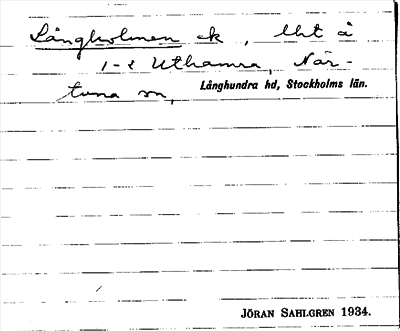 Långholmen ck, lht å
1-2 Uthamra, När-
tuna sn,
Långhundra hd, Stockholms län.
JÖRAN SAHLGREN 1934.